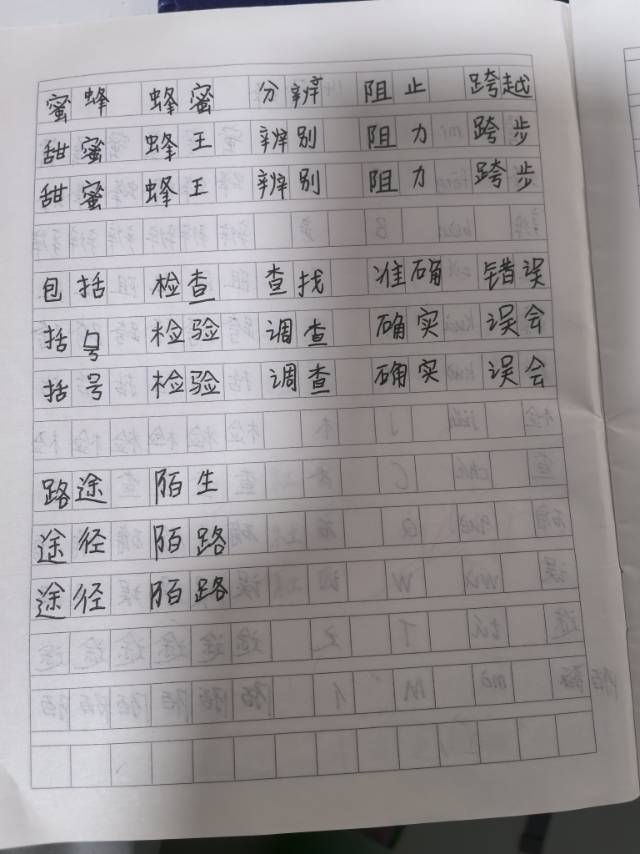 蜜蜂 蜂蜜 分辨 阻止 跨越
甜蜜 蜂王 辨别 阻力 跨步
甜蜜 蜂王 辨别 阻力 跨步
包括 检查 查找 准确 错误
括号 检验 调查 确实 误会
括号 检验 调查 确实 误会
路途 陌生
途径 陌路
途径 陌路